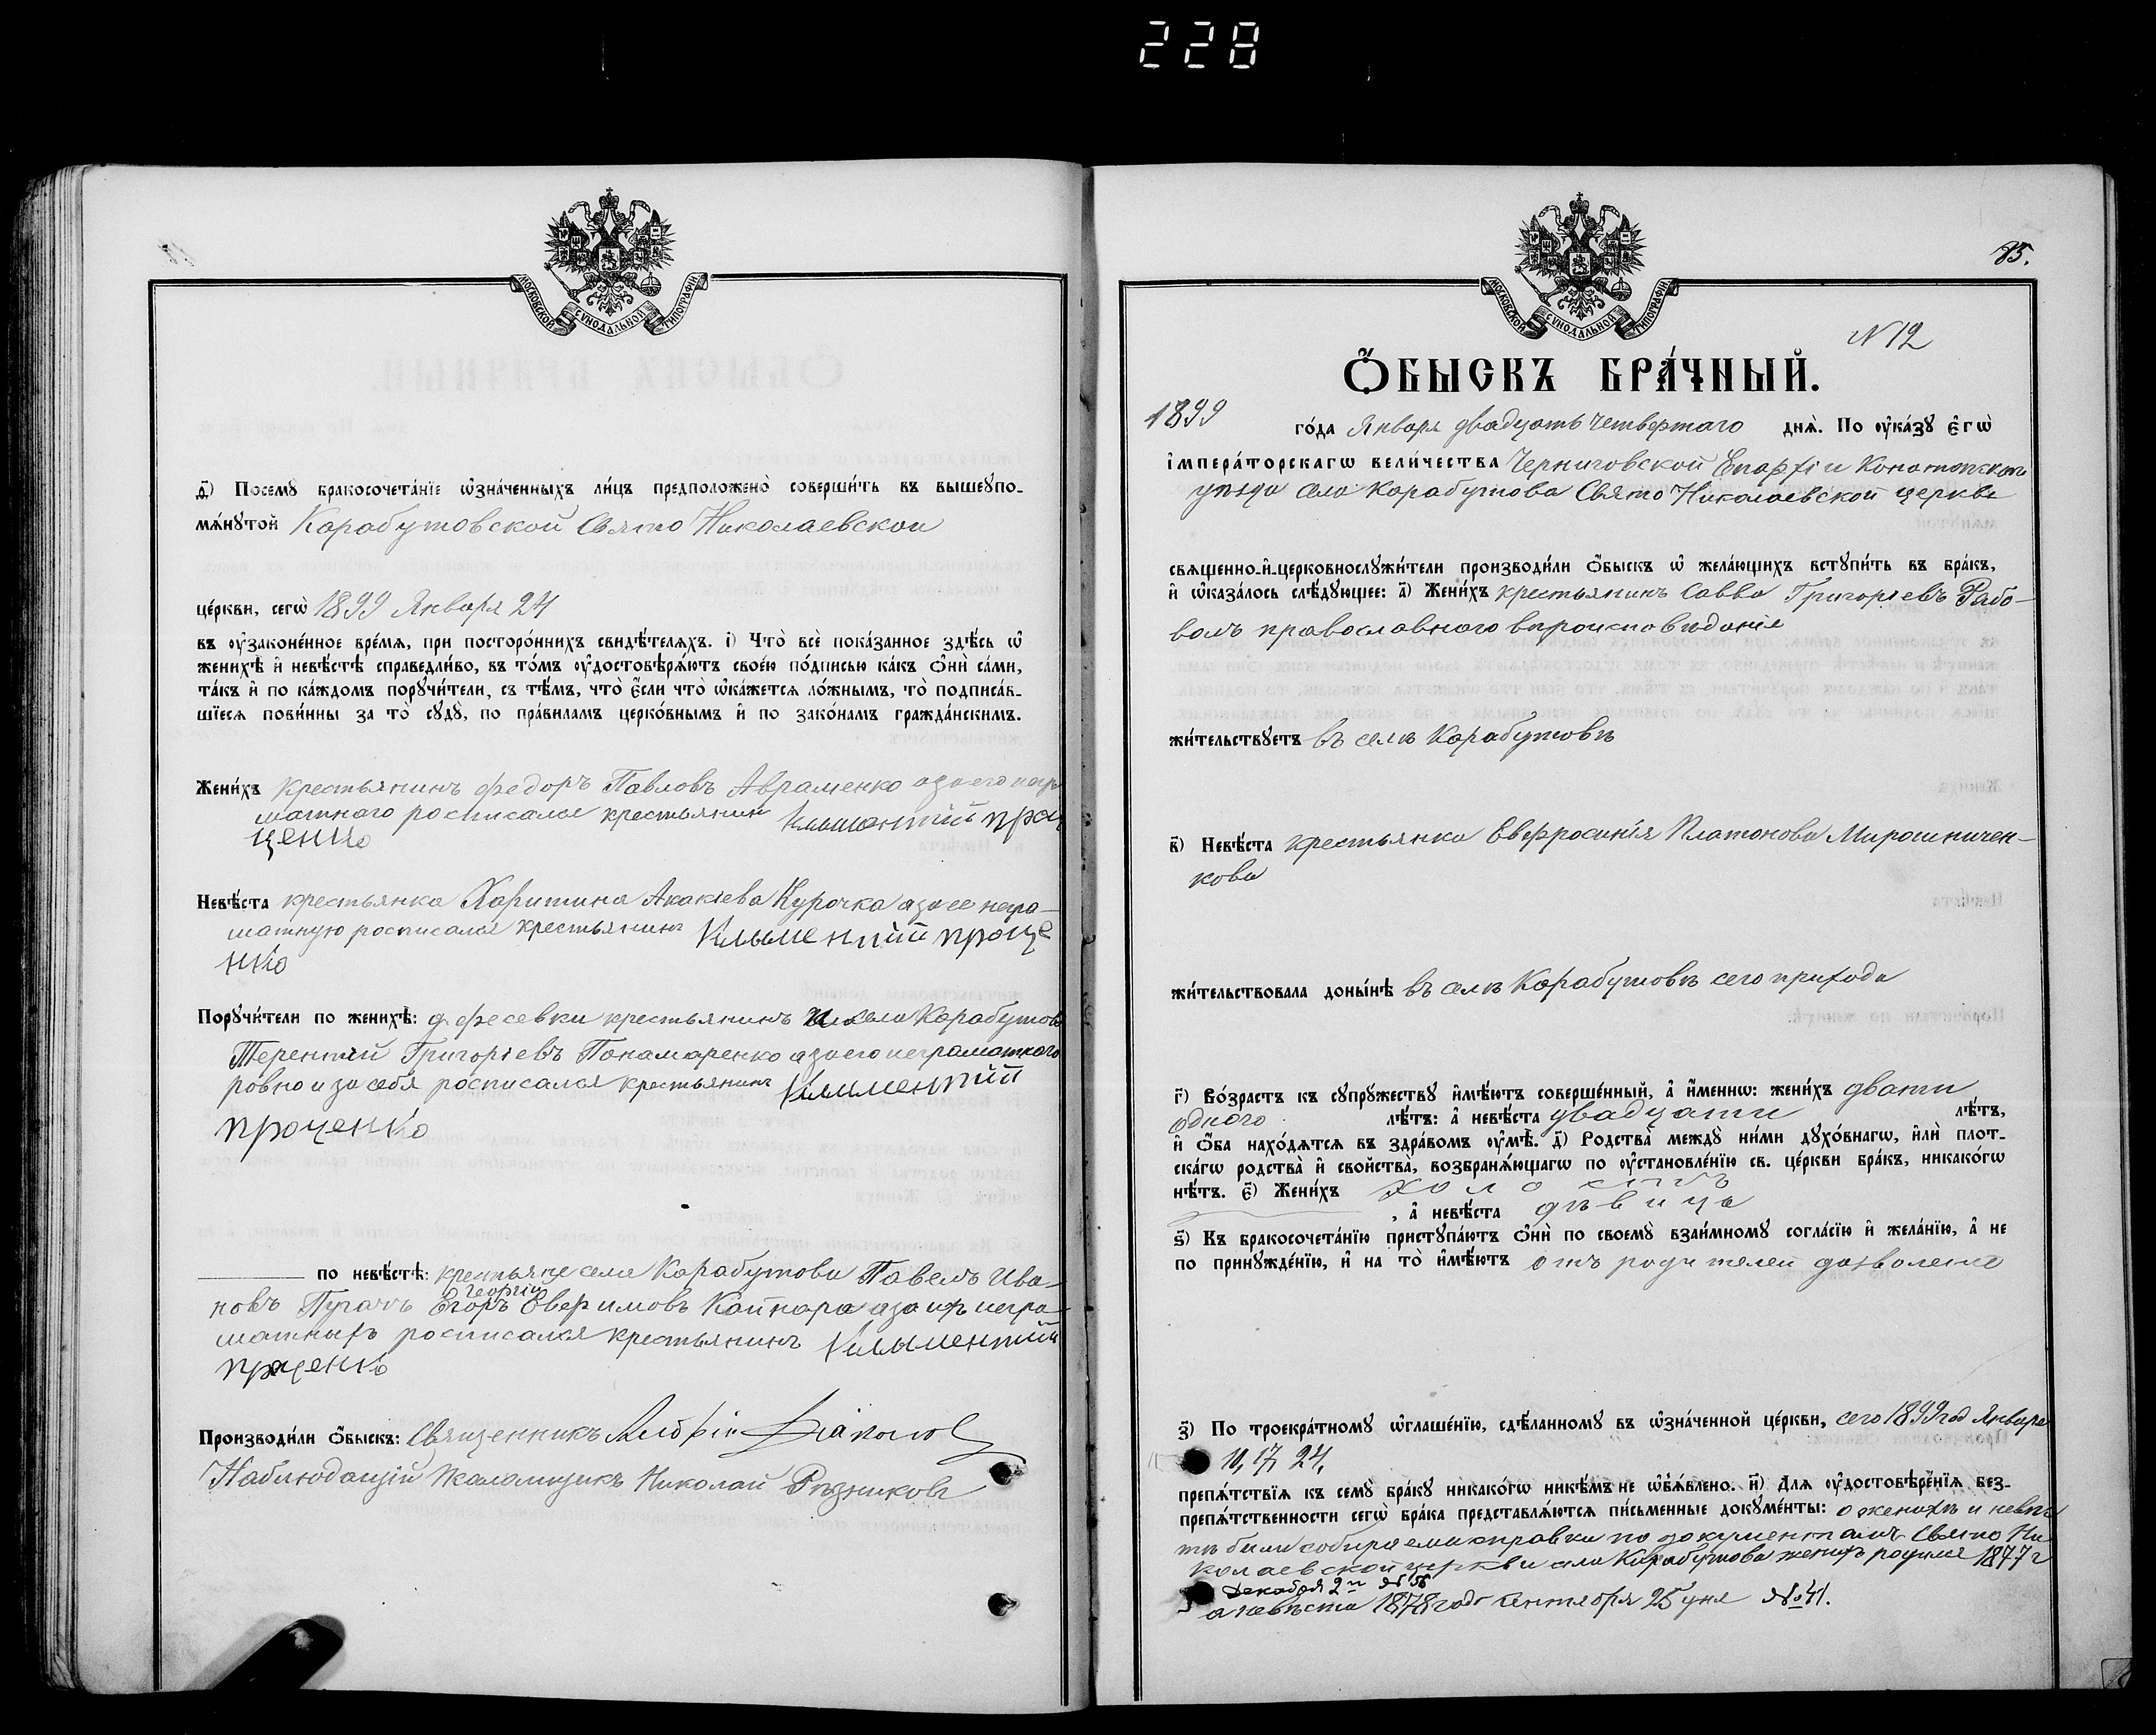 228
МОСКОВСКОЙ СѴНОДАЛЬНОЙ ТИПОГРАФІИ
д҃) Посемꙋ бракосочета́нїе ѡ҆зна́ченныхъ ли́цъ предположено̀ соверши́ть въ вышеꙋпо-
мѧ́нꙋтой Карабутовской Свято Николаевской
це́ркви, сегѡ̀ 1899 Января 24
въ ᲂу҆зако́ненное вре́мѧ, при посторо́ннихъ свидѣ́телѧхъ. і҃) Что̀ всѐ пока́занное здѣ́сь ѡ҆
женихѣ̀ и҆ невѣ́стѣ справедли́во, въ то́мъ ᲂу҆достовѣрѧ́ютъ свое́ю по́дписью ка́къ ѻ҆нѝ са́ми,
та́къ и҆ по ка́ждомъ порꙋчи́тели, съ тѣ́мъ, что̀ є҆́сли что̀ ѡ҆ка́жетсѧ ло́жнымъ, то̀ подписа́в-
шїесѧ пови́нны за то̀ сꙋдꙋ̀, по пра́виламъ церко́внымъ и҆ по зако́намъ гражда́нскимъ.
Жени́хъ крестьянинъ Федоръ Павловъ Авраменко азаего негра
матнаго росписался крестьянин Климентий проц
ценко
Невѣ́ста крестьянка Харитина Акакіева Курочка азаее негра-
матную росписался крестьянинъ Климентий проце
нко
Порꙋчи́тели по женихѣ̀: крестьянинъ села Карабутова
Терентий Григоріевъ Понамаренко азаего неграматного
ровно и за себя росписался крестьянинъ Климентий
проценко
по невѣ́стѣ: крестьяне села Карабутова Павелъ Ива-
новъ Пугачъ Егоръ Георгій Евфимовъ Кайнара азаихъ негра-
матныхъ росписался крестьянинъ Климентий
проценко
Производи́ли ѻ҆́быскъ: Священникъ
Наблюдающій Псаломщикъ Николай Рѣзниковъ
85.
МОСКОВСКОЙ СѴНОДАЛЬНОЙ ТИПОГРАФІИ
N 12
Ѻ҆́БЫСКЪ БРА́ЧНЫЙ.
1899 го́да Января двадцать четвертаго днѧ̀. По ᲂу҆ка́зꙋ є҆гѡ̀
і҆мпера́торскагѡ вели́чества Черниговской Епархіи Конотопскаго
уѣзда села Карабутова Свято Николаевской церкве
свѧщенно-и҆-церковнослꙋжи́тели производи́ли ѻ҆́быскъ ѡ҆ жела́ющихъ встꙋпи́ть въ бра́къ,
и҆ ѡ҆каза́лось слѣ́дꙋющее: а҃) Жени́хъ крестьянинъ Савва Григоріевъ Рябо-
волъ православного вѣроисповѣданія
жи́тельствꙋетъ въ селѣ Карабутовѣ
в҃) Невѣ́ста крестьянка Евфросинія Платонова Мирошничен-
кова
жи́тельствовала доны́нѣ въ селѣ Карабутовѣ сего прихода
г҃) Во́зрастъ къ сꙋпрꙋ́жествꙋ и҆мѣ́ютъ соверше́нный, а҆ и҆́меннѡ: жени́хъ двати
одного лѣ́тъ: а҆ невѣ́ста двадцати лѣ́тъ,
и҆ ѻ҆́ба нахо́дѧтсѧ въ здра́вомъ ᲂу҆мѣ̀. д҃) Родства̀ междꙋ̀ ни́ми дꙋхо́внагѡ, и҆лѝ плот-
ска́гѡ родства̀ и҆ свойства̀, возбранѧ́ющагѡ по ᲂу҆становле́нїю св. це́ркви бра́къ, никако́гѡ
нѣ́тъ. є҃) Жени́хъ холостъ
, а҆ невѣ́ста дѣвица
ѕ҃) Къ бракосочета́нїю пристꙋпа́ютъ ѻ҆нѝ по своемꙋ̀ взаи́мномꙋ согла́сїю и҆ жела́нїю, а҆ не
по принꙋжде́нїю, и҆ на то̀ и҆мѣ́ютъ отъ родителей дозволение
з҃) По троекра́тномꙋ ѡ҆глаше́нїю, сдѣ́ланномꙋ въ ѡ҆зна́ченной це́ркви, сего 1899 год Января
10, 17, 24,
препѧ́тствїѧ къ семꙋ̀ бра́кꙋ никако́гѡ никѣ́мъ не ѡ҆б̾ѧ́влено. и҃) Для ᲂу҆достовѣре́нїѧ без-
препѧ́тственности сегѡ̀ бра́ка представлѧ́ютсѧ пи́сьменные докꙋме́нты: о женихѣ и невѣс
тѣ были собираемы справки по документамъ Свято Ни
колаевской церкви села Карабутова женихъ родился 1877 г
Декабря 2го № 56
а невѣста 1878 года Сентября 25 дня № 41.